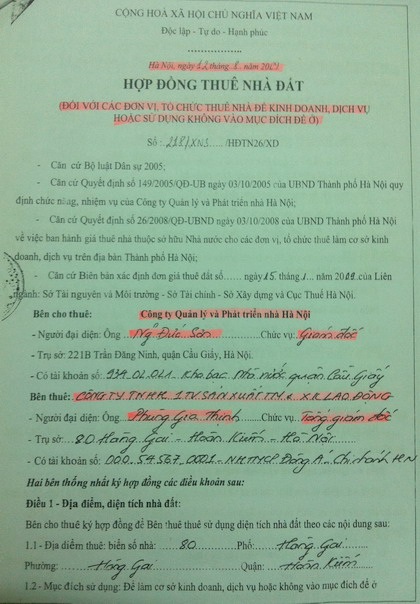 CỘNG HOÀ XÃ HỘI CHỦ NGHĨA VIỆT NAM
Độc lập - Tự do - Hạnh phúc
Hà Nội, ngày 12 tháng 1 năm
HỢP ĐỒNG THUÊ NHÀ ĐẤT
(ĐỐI VỚI CÁC ĐƠN VỊ, TỔ CHỨC THUÊ NHÀ ĐỂ KINH DOANH, DỊCH VỤ
HOẶC SỬ DỤNG KHÔNG VÀO MỤC ĐÍCH ĐỂ Ở)
Số: 218/XNS..../HĐTN26/XD
- Căn cứ Bộ luật Dân sự 2005;
- Căn cứ Quyết định số 149/2005/QĐ-UB ngày 03/10/2005 của UBND Thành phố Hà Nội quy
định chức năng, nhiệm vụ của Công ty Quản lý và Phát triển nhà Hà Nội;
- Căn cứ Quyết định số 26/2008/QĐ-UBND ngày 03/10/2008 của UBND Thành phố Hà Nội
về việc ban hành giá thuê nhà thuộc sở hữu Nhà nước cho các đơn vị, tổ chức thuê làm cơ sở kinh
doanh, dịch vụ trên địa bàn Thành phố Hà Nội;
- Căn cứ Biên bản xác định đơn giá thuê đất số...... ngày 15 tháng 1.. năm của Liên
ngành: Sở Tài nguyên và Môi trường - Sở Tài chính - Sở Xây dựng và Cục Thuế Hà Nội.
Bên cho thuê: Công ty Quản lý và Phát triển nhà Hà Nội
- Người đại diện: Ông Ng Đức Sơn Chức vụ: Giám đốc
- Trụ sở: 221B Trần Đăng Ninh, quận Cầu Giấy, Hà Nội.
- Có tài khoản số: 934.01.01.1 Kho bạc Nhà nước quận Cầu Giấy
Bên thuê: CÔNG TY TNHH 1TV SẢN XUẤT TM & XK LAO ĐỘNG
- Người đại diện: Ông Phùng Gia Thịnh Chức vụ: Tổng giám đốc
- Trụ sở: 80 Hàng Gai - Hoàn Kiếm - Hà Nội
- Có tài khoản số: 000.54567.0001 - NHTMCP Đông Á - Chi nhánh HN
Hai bên thống nhất ký hợp đồng các điều khoản sau:
Điều 1 - Địa điểm, diện tích nhà đất:
Bên cho thuê ký hợp đồng để Bên thuê thuê sử dụng diện tích nhà đất theo các nội dung sau:
1.1 - Địa điểm thuê: biển số nhà: 80 Phố: Hàng Gai
Phường: Hàng Gai Quận: Hoàn Kiếm
1.2 - Mục đích sử dụng: Để làm cơ sở kinh doanh, dịch vụ hoặc không vào mục đích để ở